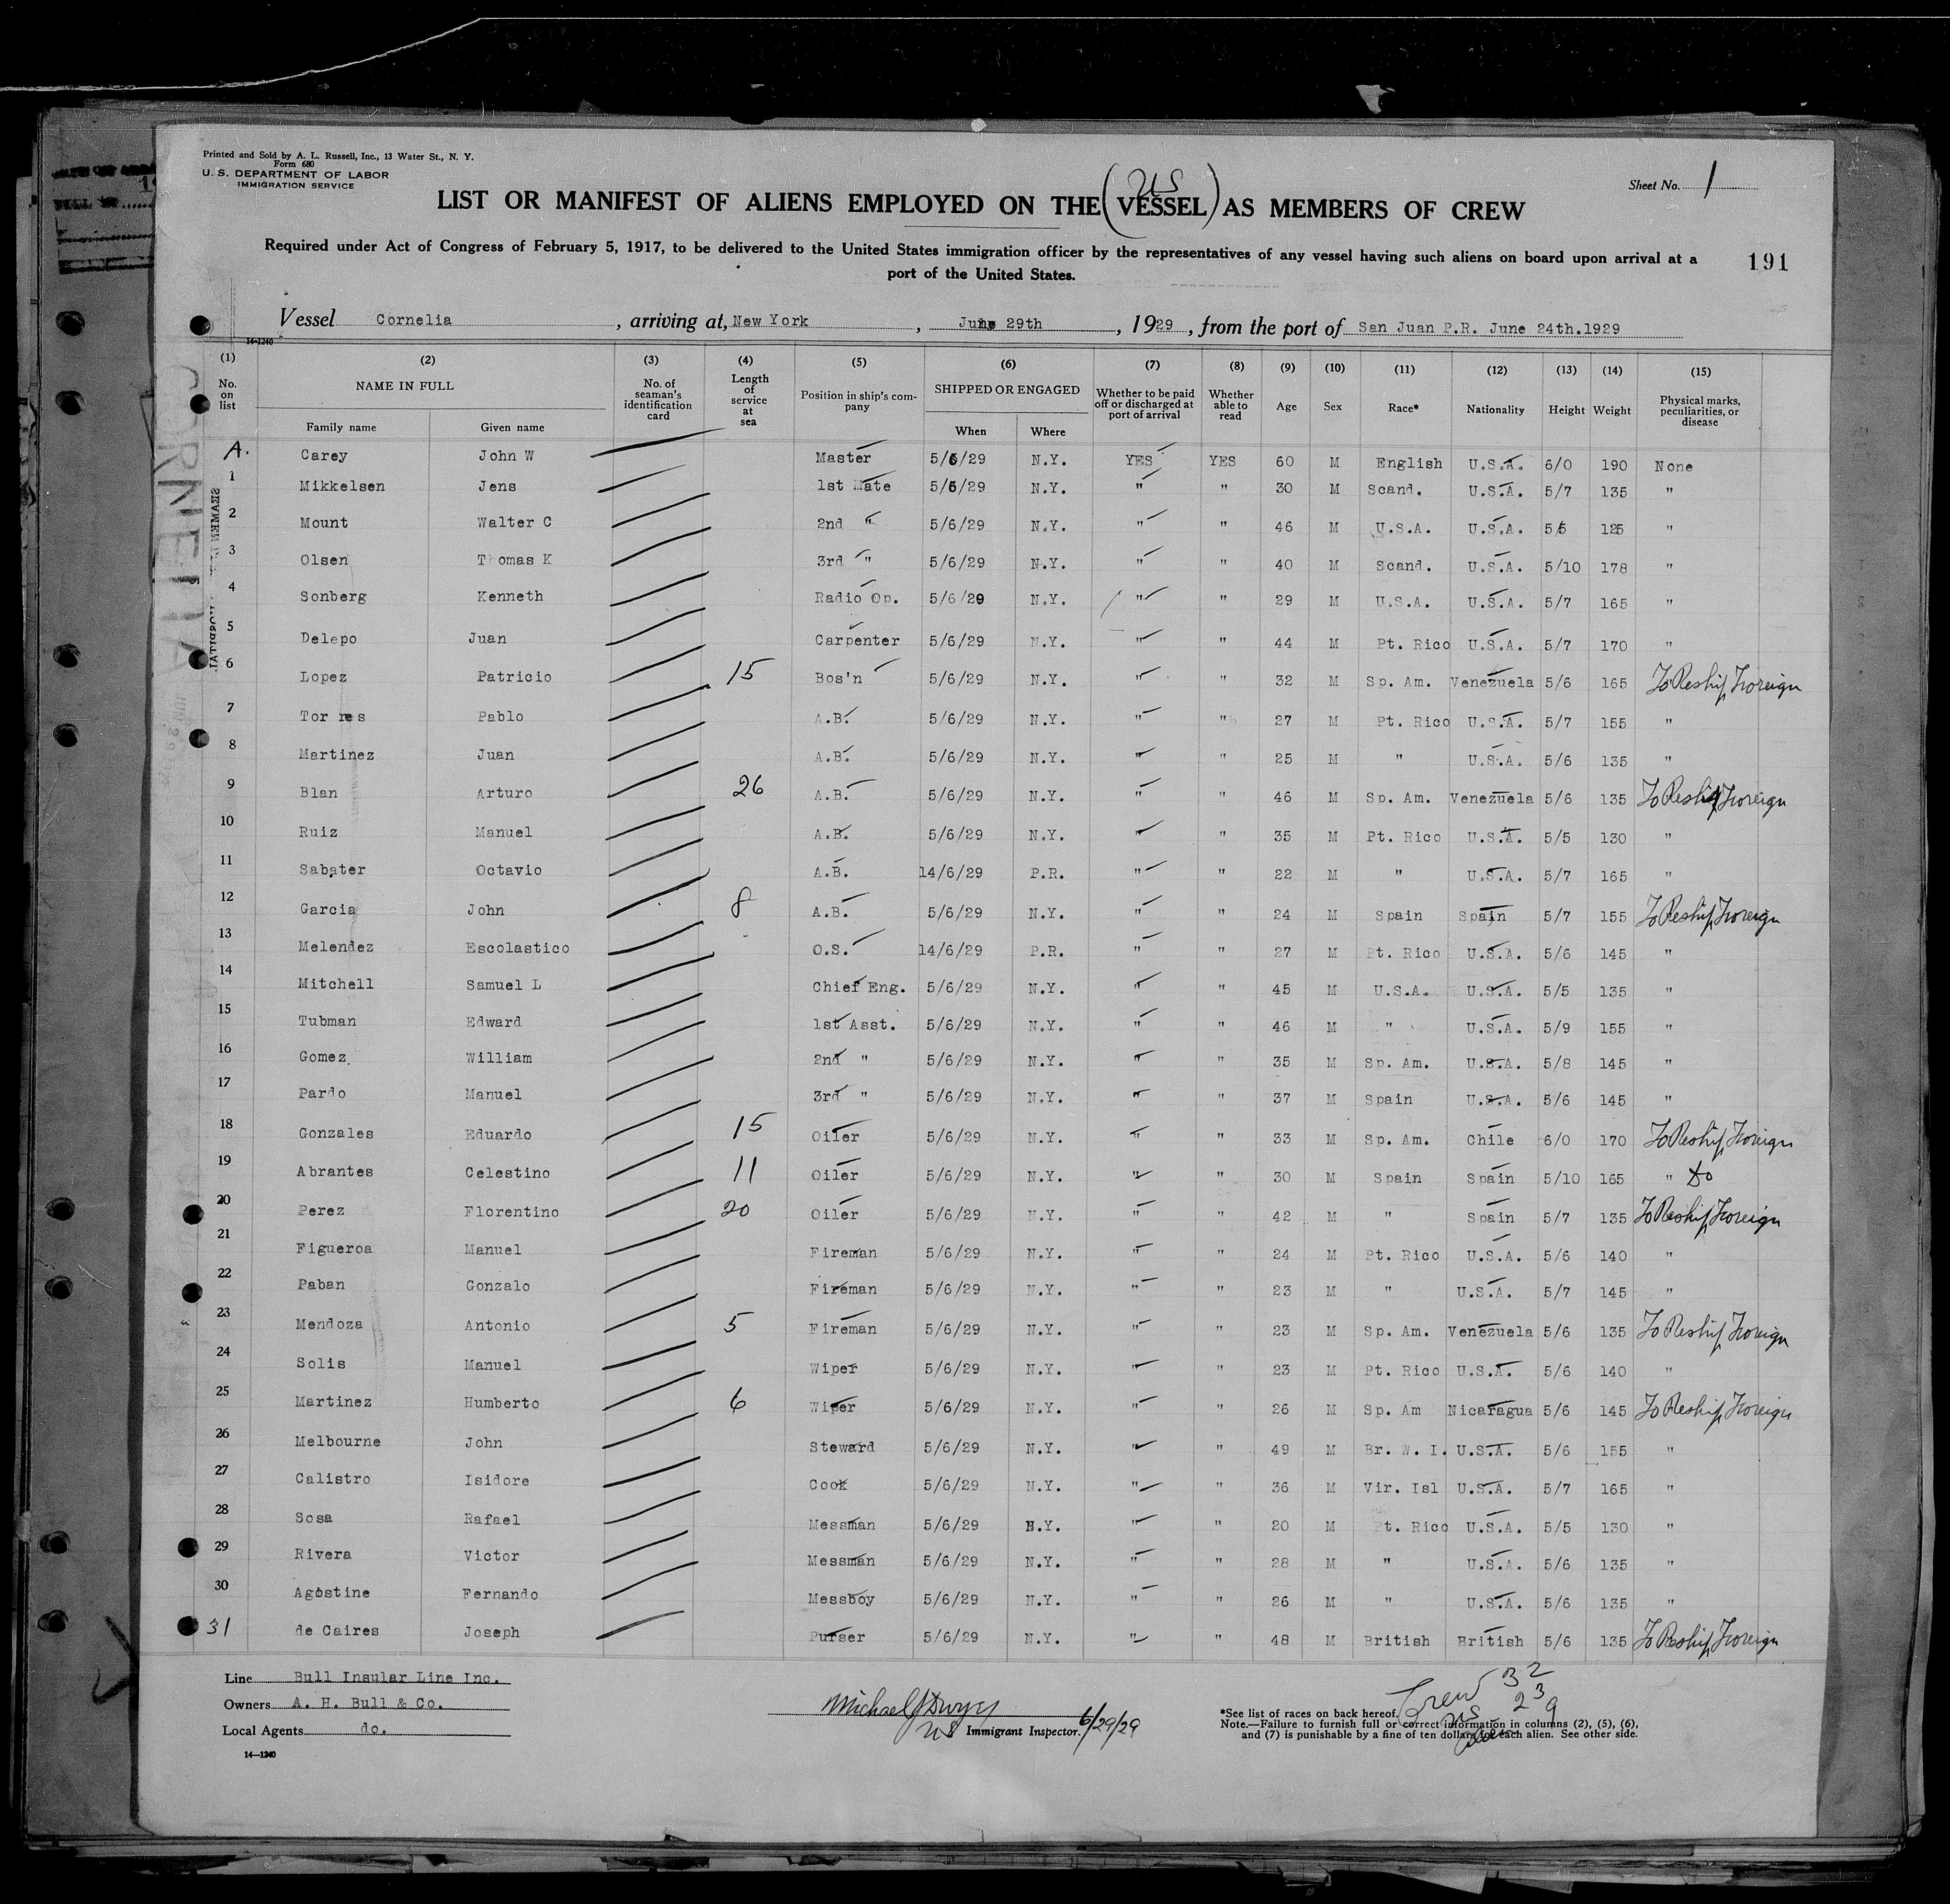 Printed and Sold by A. L. Russell, Inc., 13 Water St., N. Y.
Form 680
U. S. DEPARTMENT OF LABOR
IMMIGRATION SERVICE
Sheet No. 1
US
LIST OR MANIFEST OF ALIENS EMPLOYED ON THE (VESSEL) AS MEMBERS OF CREW
Required under Act of Congress of February 5, 1917, to be delivered to the United States immigration officer by the representatives of any vessel having such aliens on board upon arrival at a
port of the United States.
191
Vessel Cornelia, arriving at, New York, June 29th, 1929, from the port of San Juan P.R. June 24th.1929
14-1240
(1) (2) (3) (4) (5) (6) (7) (8) (9) (10) (11) (12) (13) (14) (15)
No. on list NAME IN FULL No. of seaman's identification card Length of service at sea Position in ship's company SHIPPED OR ENGAGED Whether to be paid off or discharged at port of arrival Whether able to read Age Sex Race* Nationality Height Weight Physical marks, peculiarities, or disease
Family name Given name When Where
A. Carey John W Master 5/6/29 N.Y. YES YES 60 M English U.S.A. 6/0 190 None
1 Mikkelsen Jens 1st Mate 5/6/29 N.Y. " " 30 M Scand. U.S.A. 5/7 135 "
2 Mount Walter C 2nd " 5/6/29 N.Y. " " 46 M U.S.A. U.S.A. 5/5 125 "
3 Olsen Thomas K 3rd " 5/6/29 N.Y. " " 40 M Scand. U.S.A. 5/10 178 "
4 Sonberg Kenneth Radio Op. 5/6/29 N.Y. " " 29 M U.S.A. U.S.A. 5/7 165 "
5 Delepo Juan Carpenter 5/6/29 N.Y. " " 44 M Pt. Rico U.S.A. 5/7 170 "
6 Lopez Patricio 15 Bos'n 5/6/29 N.Y. " " 32 M Sp. Am. Venezuela 5/6 165 To Reship Foreign
7 Torres Pablo A.B. 5/6/29 N.Y. " " 27 M Pt. Rico U.S.A. 5/7 155 "
8 Martinez Juan A.B. 5/6/29 N.Y. " " 25 M " U.S.A. 5/6 135 "
9 Blan Arturo 26 A.B. 5/6/29 N.Y. " " 46 M Sp. Am. Venezuela 5/6 135 To Reship Foreign
10 Ruiz Manuel A.B. 5/6/29 N.Y. " " 35 M Pt. Rico U.S.A. 5/5 130 "
11 Sabater Octavio A.B. 14/6/29 P.R. " " 22 M " U.S.A. 5/7 165 "
12 Garcia John 8 A.B. 5/6/29 N.Y. " " 24 M Spain Spain 5/7 155 To Reship Foreign
13 Melendez Escolastico O.S. 14/6/29 P.R. " " 27 M Pt. Rico U.S.A. 5/6 145 "
14 Mitchell Samuel L Chief Eng. 5/6/29 N.Y. " " 45 M U.S.A. U.S.A. 5/5 135 "
15 Tubman Edward 1st Asst. 5/6/29 N.Y. " " 46 M " U.S.A. 5/9 155 "
16 Gomez William 2nd " 5/6/29 N.Y. " " 35 M Sp. Am. U.S.A. 5/8 145 "
17 Pardo Manuel 3rd " 5/6/29 N.Y. " " 37 M Spain U.S.A. 5/6 145 "
18 Gonzales Eduardo 15 Oiler 5/6/29 N.Y. " " 33 M Sp. Am. Chile 6/0 170 To Reship Foreign
19 Abrantes Celestino 11 Oiler 5/6/29 N.Y. " " 30 M Spain Spain 5/10 165 " do
20 Perez Florentino 20 Oiler 5/6/29 N.Y. " " 42 M " Spain 5/7 135 To Reship Foreign
21 Figueroa Manuel Fireman 5/6/29 N.Y. " " 24 M Pt. Rico U.S.A. 5/6 140 "
22 Paban Gonzalo Fireman 5/6/29 N.Y. " " 23 M " U.S.A. 5/7 145 "
23 Mendoza Antonio 5 Fireman 5/6/29 N.Y. " " 23 M Sp. Am. Venezuela 5/6 135 To Reship Foreign
24 Solis Manuel Wiper 5/6/29 N.Y. " " 23 M Pt. Rico U.S.A. 5/6 140 "
25 Martinez Humberto 6 Wiper 5/6/29 N.Y. " " 26 M Sp. Am Nicaragua 5/6 145 To Reship Foreign
26 Melbourne John Steward 5/6/29 N.Y. " " 49 M Br. W. I. U.S.A. 5/6 155 "
27 Calistro Isidore Cook 5/6/29 N.Y. " " 36 M Vir. Isl U.S.A. 5/7 165 "
28 Sosa Rafael Messman 5/6/29 N.Y. " " 20 M Pt. Rico U.S.A. 5/5 130 "
29 Rivera Victor Messman 5/6/29 N.Y. " " 28 M " U.S.A. 5/6 135 "
30 Agostine Fernando Messboy 5/6/29 N.Y. " " 26 M " U.S.A. 5/6 135 "
31 de Caires Joseph Purser 5/6/29 N.Y. " " 48 M British British 5/6 135 To Reship Foreign
Line Bull Insular Line Inc.
Owners A. H. Bull & Co.
Local Agents do.
14-1240
Michael J Dwyer
US Immigrant Inspector. 6/29/29
Crew 32
US 23
9
*See list of races on back hereof.
Note.—Failure to furnish full or correct information in columns (2), (5), (6),
and (7) is punishable by a fine of ten dollars for each alien. See other side.
CORNELIA